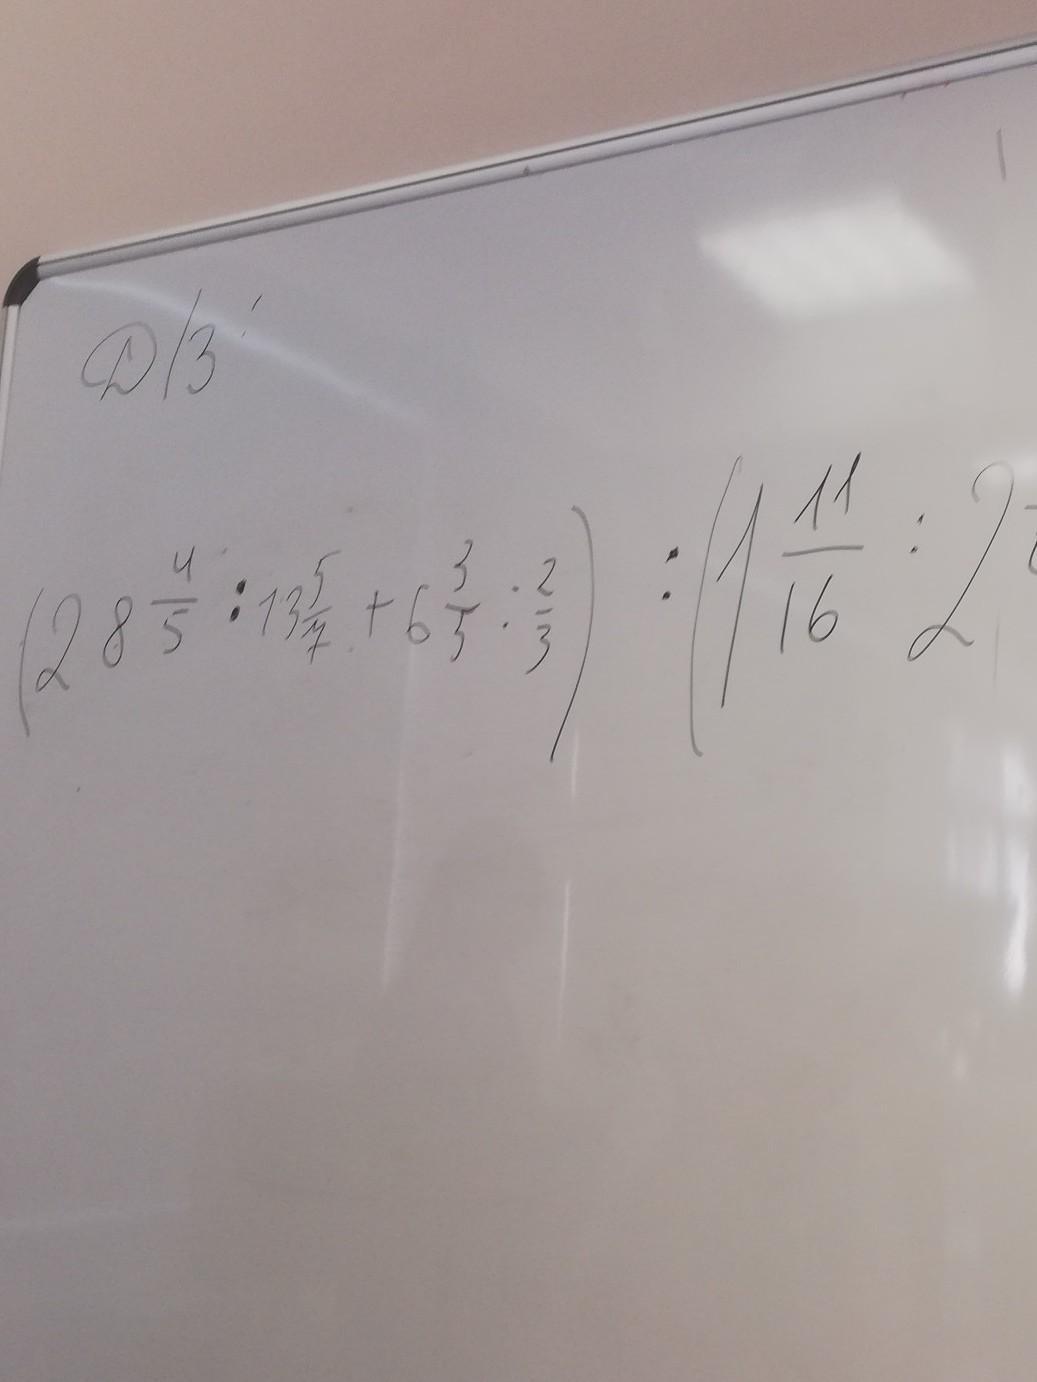 Д/З
(28 4/5 : 13 5/7 + 6 3/5 : 2/3) : (1 11/16 : 2